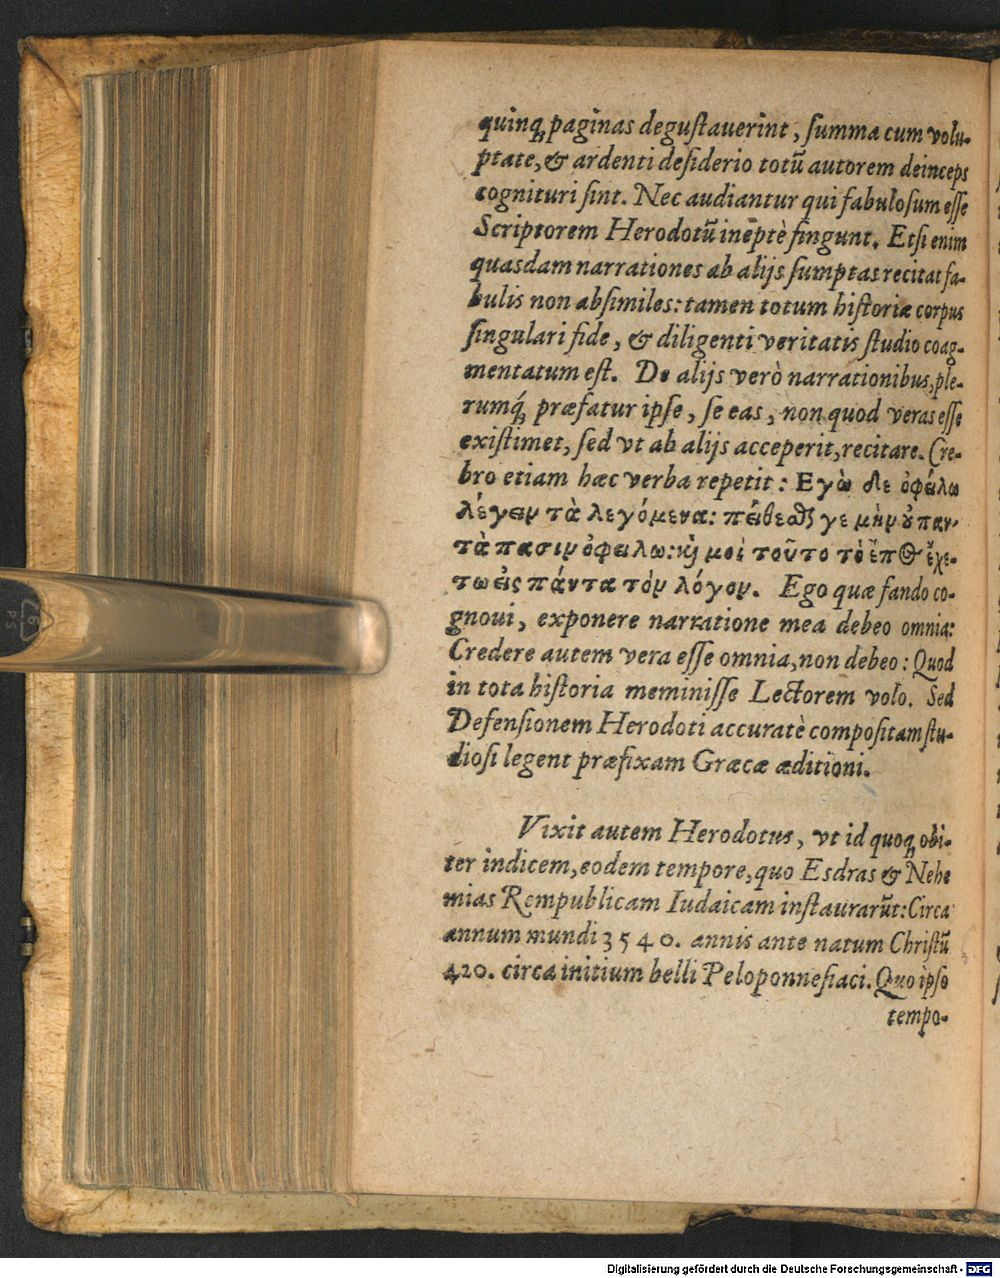 quinq́; paginas degustauerint, summa cum volu-
ptate, & ardenti desiderio totũ autorem deinceps
cognituri sint. Nec audiantur qui fabulosum esse
Scriptorem Herodotũ ineptè fingunt. Etsi enim
quasdam narrationes ab alijs sumptas recitat fa-
bulis non absimiles: tamen totum historiæ corpus
singulari fide, & diligenti veritatis studio coag-
mentatum est. De alijs verò narrationibus, ple-
rumq́; præfatur ipse, se eas, non quod veras esse
existimet, sed vt ab alijs acceperit, recitare. Cre-
bro etiam hæc verba repetit: Εγὼ δε ὀφείλω
λέγειν τὰ λεγόμενα: πείθεσθς γε μὴν οὐ παν-
τὰ πασιν ὀφειλω: καί μοὶ τοῦτο τὸ ἔπος ἔχε-
τω εἰς πάντα τὸν λόγον. Ego quæ fando co-
gnoui, exponere narratione mea debeo omnia:
Credere autem vera esse omnia, non debeo: Quod
in tota historia meminisse Lectorem volo. Sed
Defensionem Herodoti accuratè compositam stu-
diosi legent præfixam Græcæ æditioni.
Vixit autem Herodotus, vt id quoq; obi-
ter indicem, eodem tempore, quo Esdras & Nehe
mias Rempublicam Iudaicam instaurarũt: Circa
annum mundi 3540. annis ante natum Christũ
420. circa initium belli Peloponnesiaci. Quo ipso
tempo-
Digitalisierung gefördert durch die Deutsche Forschungsgemeinschaft - DFG